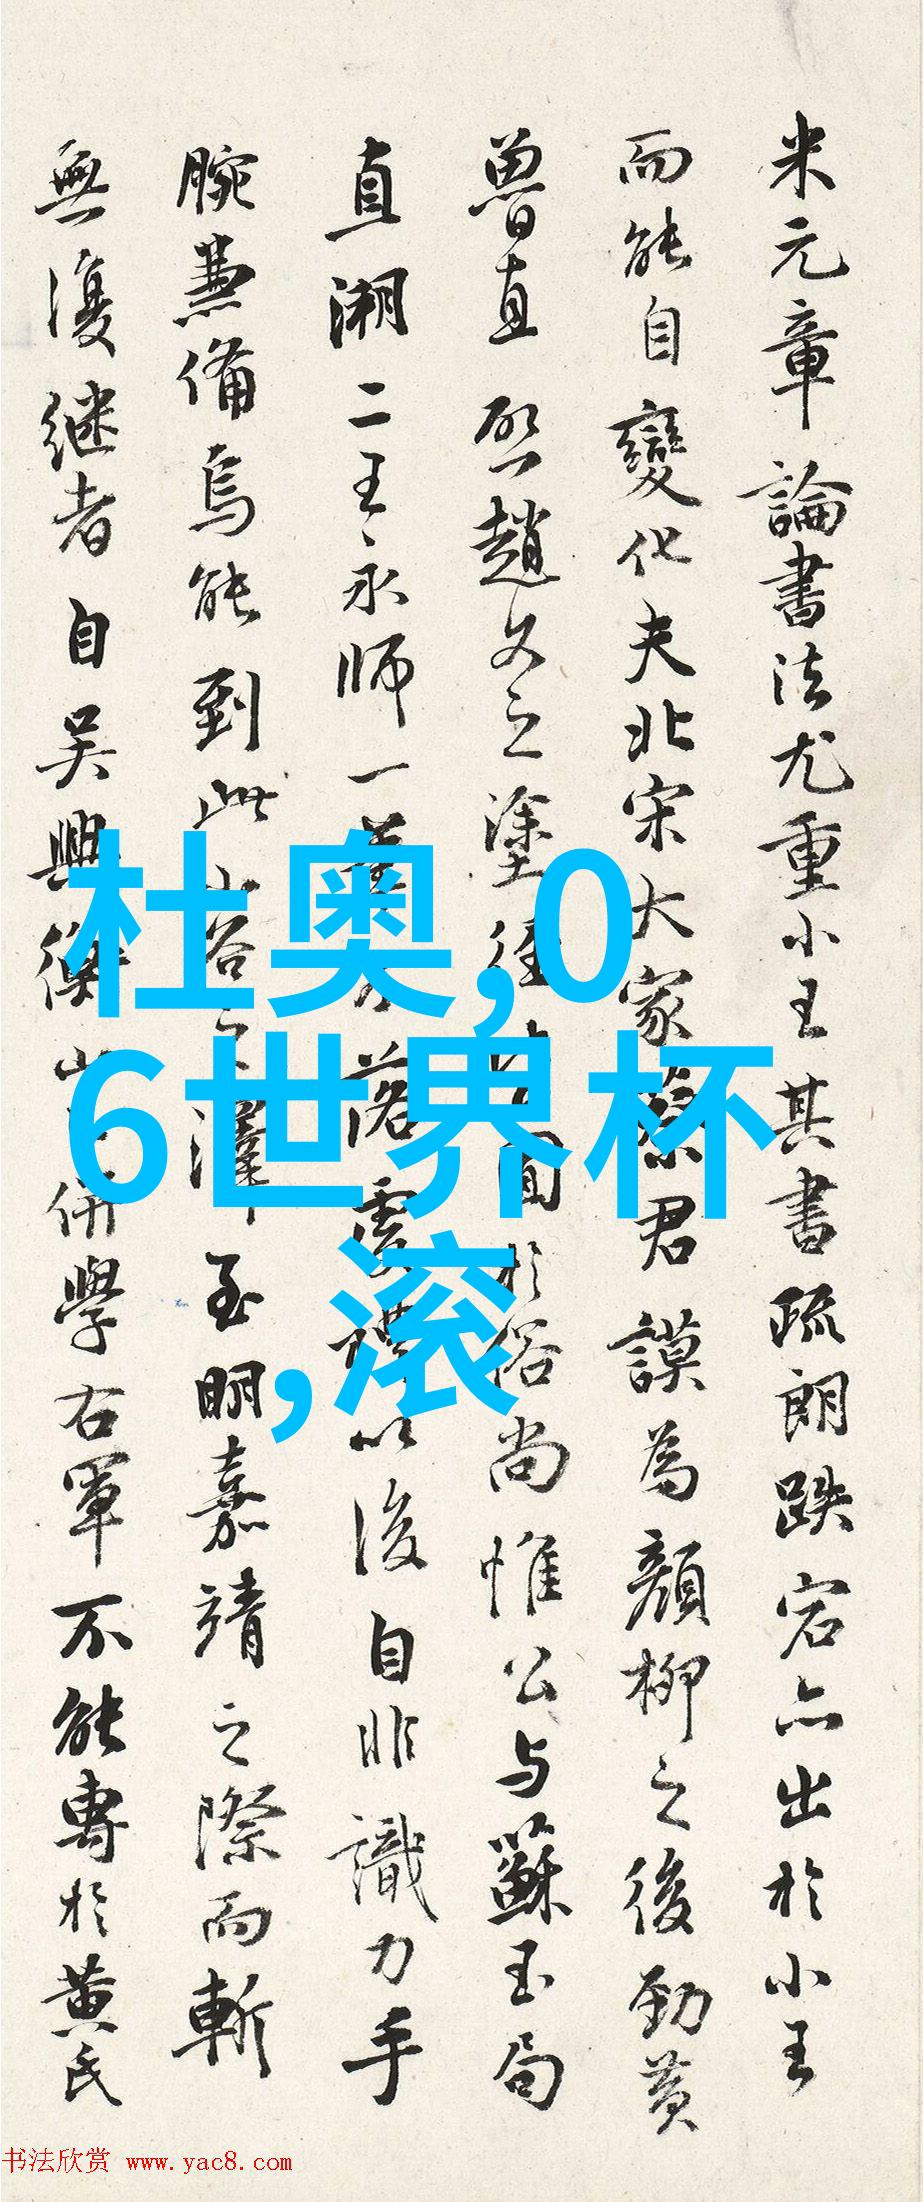 米元章論書法尤重小王其書疏朗跌宕亦出於小王
而能自變化夫北宋大家蔡君謨為顏柳之後勁黃
魯直啓趙文之塗徑 圓於俗尚惟公与蘇玉局
直溯二王永師一 落 以後自非識力手
腕兼備烏能到此 谷 澤 至明嘉靖之際而斬
無復继者自吴興衡山 併學右軍不能專於黄氏
杜奥,0
6世界杯
,滚
书法欣赏 www.yac8.com